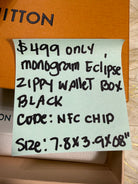 UITTON
$499 only,
monogram Eclipse
Zippy Wallet Box
BLACK
CODE: NFC CHIP
Size: 7.8X3.9X08"